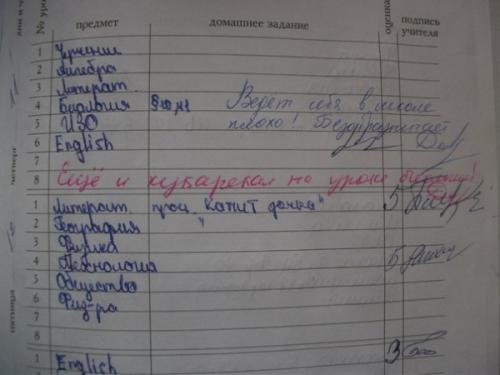 дни и ч
№ уро
предмет
домашнее задание
оценка
подпись учителя
1 Черчение
2 Алгебра
3 Литерат.
4 Биология § Ведет себя в школе
5 ИЗО плохо!
6 English
7
четверг
8 Ещё и кукарекал на уроке
1 Литерат. "Капит дочка" 5
2 География "
3 Физика
4 Технология 5
5 Общество
6 Физ-ра
7
пятница
8
1 English 3